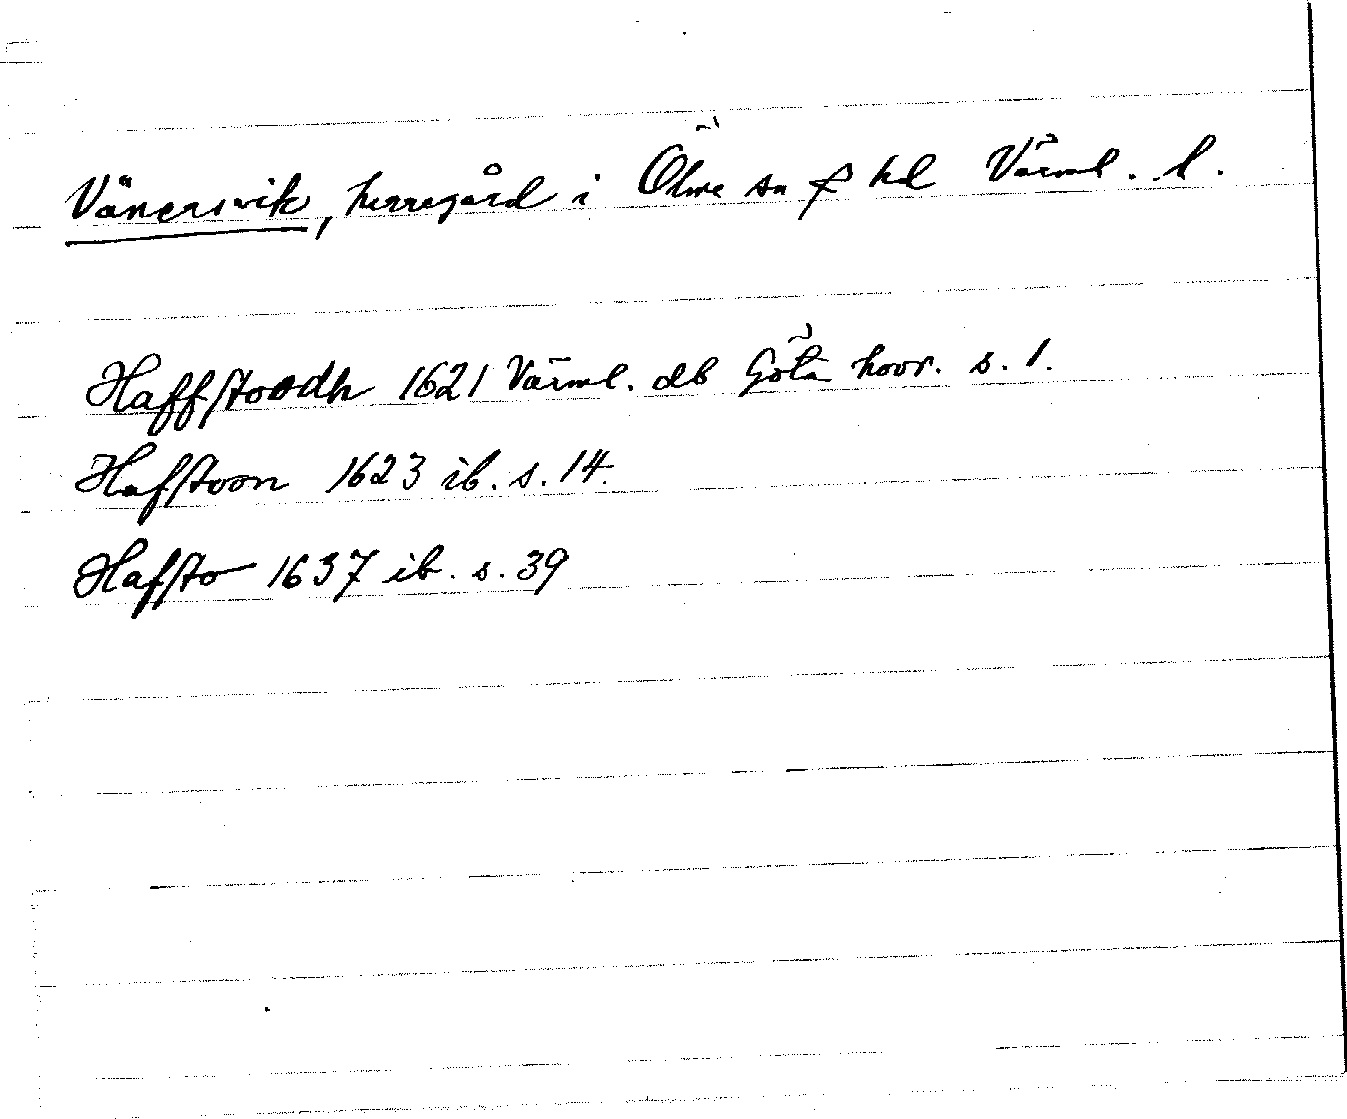 Vänersvik, herregård i Ölme sn & hd Värml. l.
Haffstoodh 1621 Värml. db Göta hovr. s. 1.
Hafstoon 1623 ib. s. 14.
Hafsto 1637 ib. s. 39